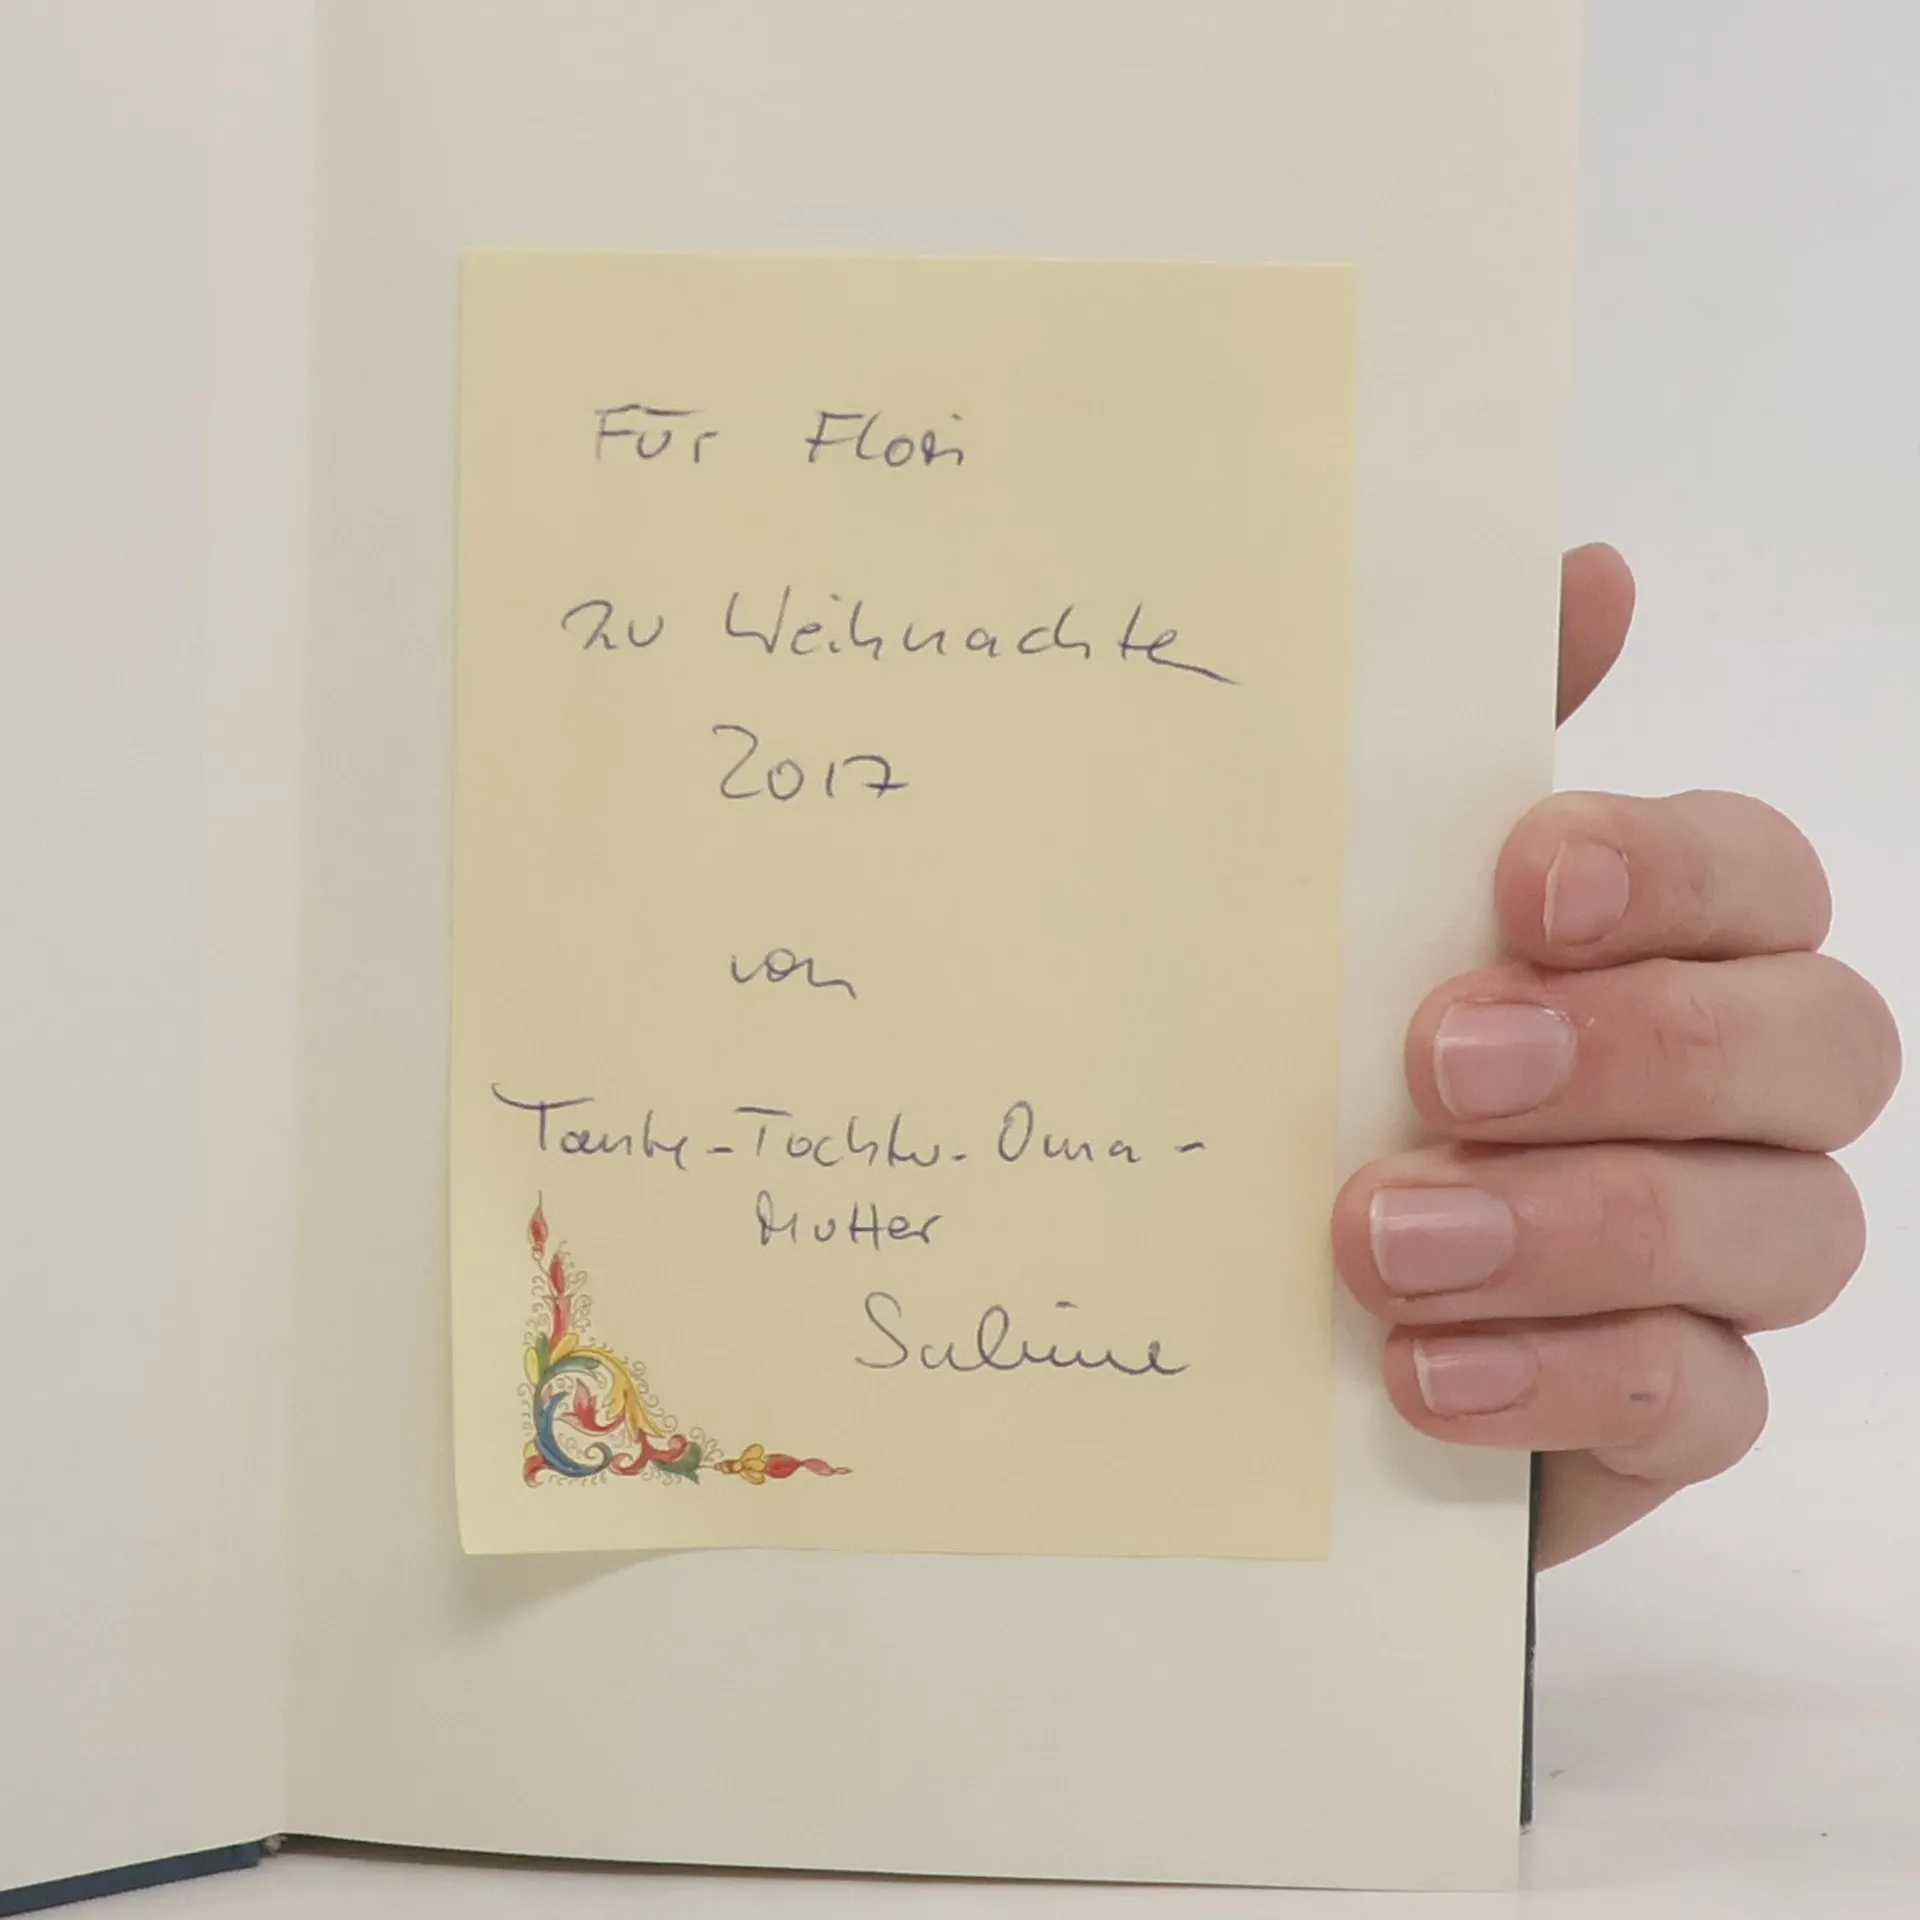 Für Flori
zu Weihnachten
2017
von
Tante-Tochter-Oma-
Mutter
Sabine